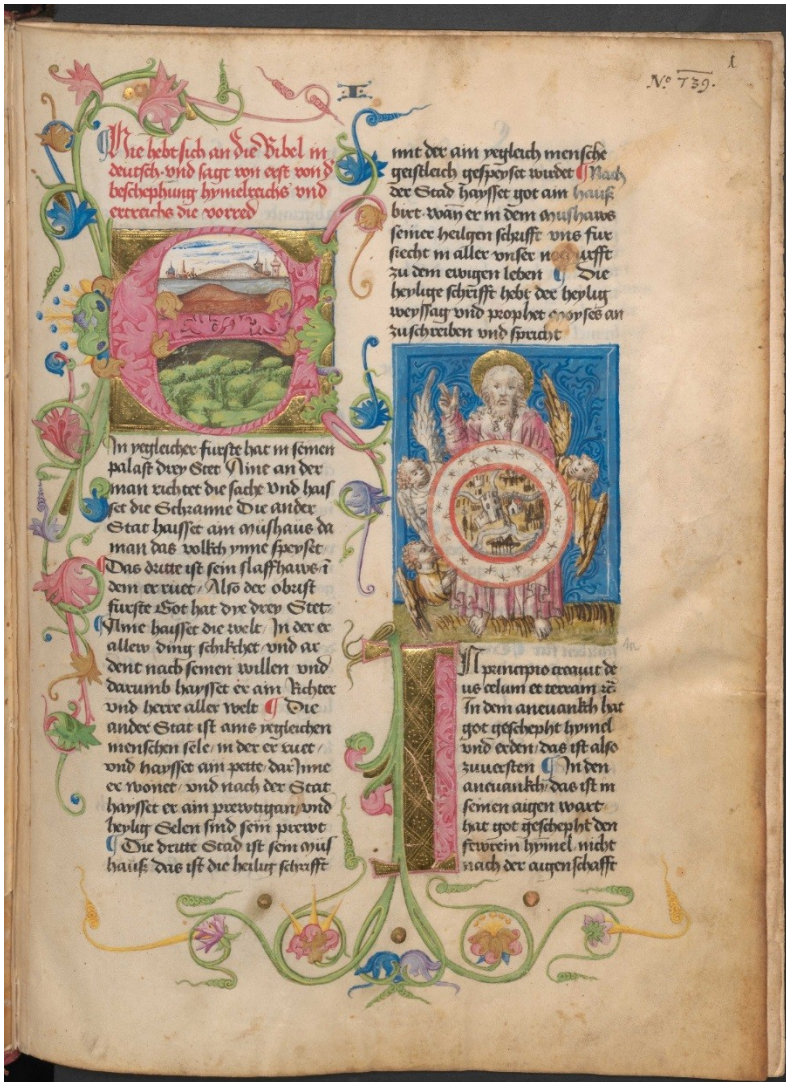 1
No 739.
I
Hie hebt sich an die Bibel in
deutsch vnd sagt von erst von d
beschephung hymelreichs vnd
ertreichs die vorred
E
In yegleicher furste hat in seinen
palast drey Stet Aine an der
man richtet die sache vnd hais
set die Schranne Die ander
Stat haisset ain mushaus da
man das volkch ynne speyset
Das dritte ist sein slaffhaws i
dem er ruet Also der obrist
furste Got hat dye drey Stet
Aine haisset die welt In der er
allew ding schikchet vnd ar
dent nach seinen willen vnd
darumb haysset er ain Richter
vnd herre aller welt Die
ander Stat ist ains yegleichen
menschen sele in der er ruet
vnd haysset ain pette dar Inne
er wonet vnd nach der Stat
haysset er ain prewtigan vnd
heylig Selen sind sein prewt
Die dritte Stad ist sein mus
haus das ist die heilig schrifft
mit der ain yegleich mensche
geistleich gespeyset wirdet Nach
der Stad haysset got ain haus
birt wan er in dem mushaws
seiner heiligen schrifft vns fur
siecht in aller vnser notdurfft
zu dem ewigen leben Die
heylige schrifft hebt der heylig
weyssag vnd prophet moyses an
zuschreiben vnd spricht
I
N principio creauit de
us celum et terram rc
In dem anevankh hat
got geschepht hymel
vnd erden das ist also
zuuersten In den
anevankh das ist in
seinen aigen wart
hat got geschepht den
fewrein hymel nicht
nach der augenschafft